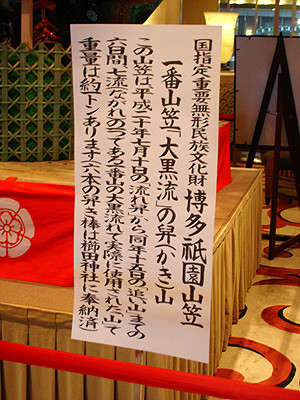 国指定重要無形民族文化財 博多祇園山笠
一番山笠「大黒流」の舁(かき)山
この山笠は平成二十年七月十日の「流れ舁」から同年十五日の「追い山」までの
六日間、七流(ながれ)の一つである一番山の大黒流れで実際に使用された「山」で
重量は約一トンあります(六本の舁き棒は櫛田神社に奉納済